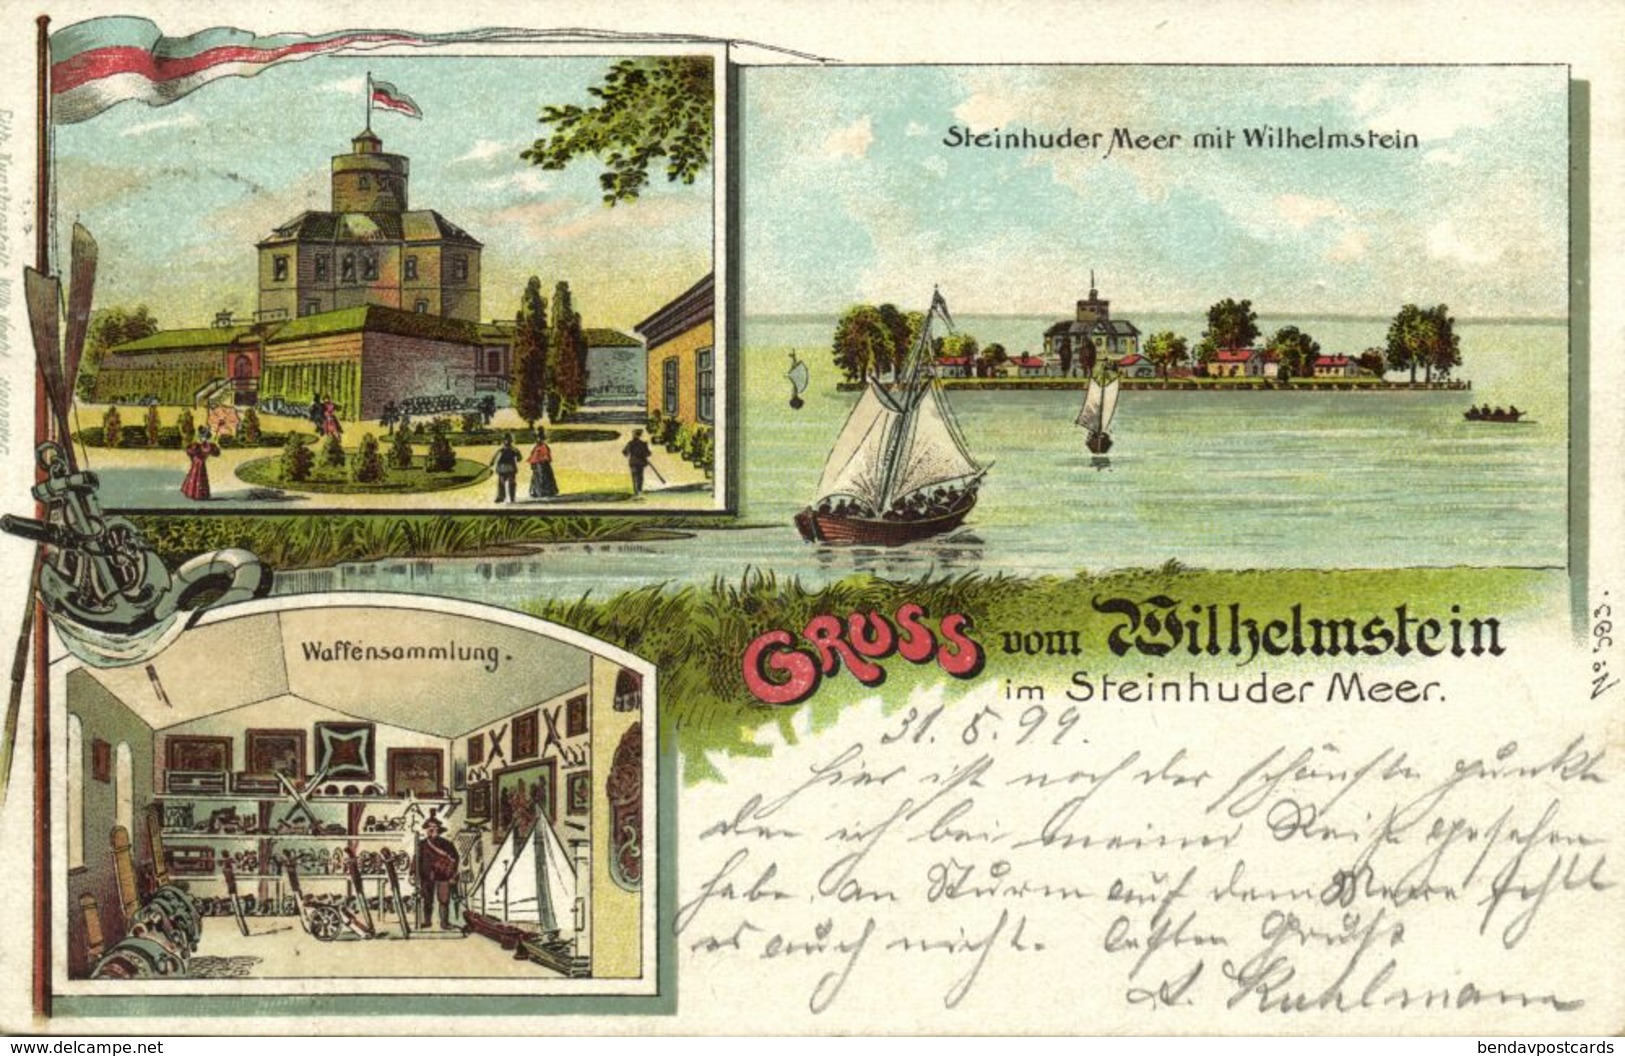 Steinhuder Meer mit Wilhelmstein
Waffensammlung.
GRUSS vom Wilhelmstein
im Steinhuder Meer.
No. 593.
31. 5. 99.
Hier ist noch der schönste Punkt
den ich bei meiner Reise gesehen
habe. An Sturm auf dem Meere fehlt
es auch nicht. Besten Gruß
A. Kuhlmann
www.delcampe.net
bendavpostcards